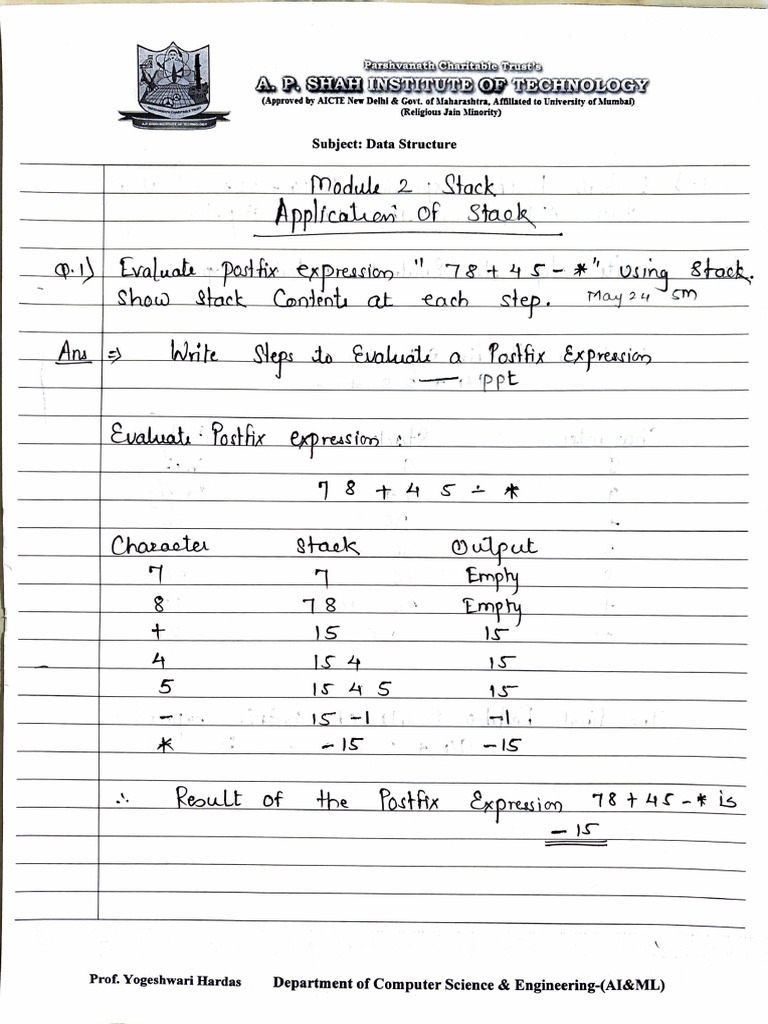 Parshvanath Charitable Trust's
A. P. SHAH INSTITUTE OF TECHNOLOGY
(Approved by AICTE New Delhi & Govt. of Maharashtra, Affiliated to University of Mumbai)
(Religious Jain Minority)
Subject: Data Structure
Module 2 : Stack
Application Of Stack
Q.1) Evaluate postfix expression " 7 8 + 4 5 - * " using stack.
Show stack Contents at each step. May 24 5m
Ans ⇒ Write Steps to Evaluate a Postfix Expression
— ppt
Evaluate Postfix expression :
7 8 + 4 5 - *
Character Stack Output
7 7 Empty
8 7 8 Empty
+ 15 15
4 15 4 15
5 15 4 5 15
- 15 -1 -1
* -15 -15
∴ Result of the Postfix Expression 7 8 + 4 5 - * is
- 15
Prof. Yogeshwari Hardas Department of Computer Science & Engineering-(AI&ML)